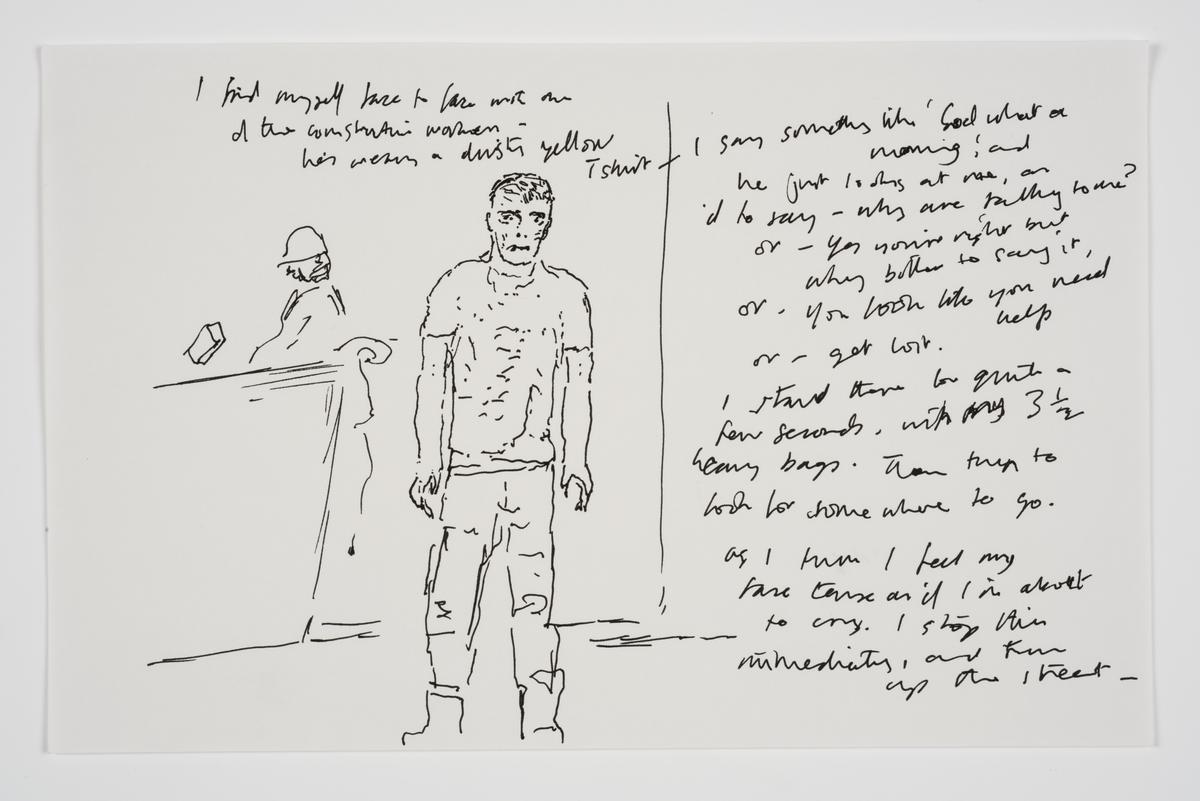 I find myself face to face with one
of the construction workmen -
he's wearing a dusty yellow
T shirt -
I say something like 'God what a
morning', and
he just looks at me, as
if to say - why are talking to me?
or - yes you're right but
why bother to say it,
or - you look like you need
help
or - get lost.
I stand there for quite a
few seconds, with my 3 ½
heavy bags. Then turn to
look for somewhere to go.
as I turn I feel my
face tense as if I'm about
to cry. I stop this
immediately, and turn
up the street -